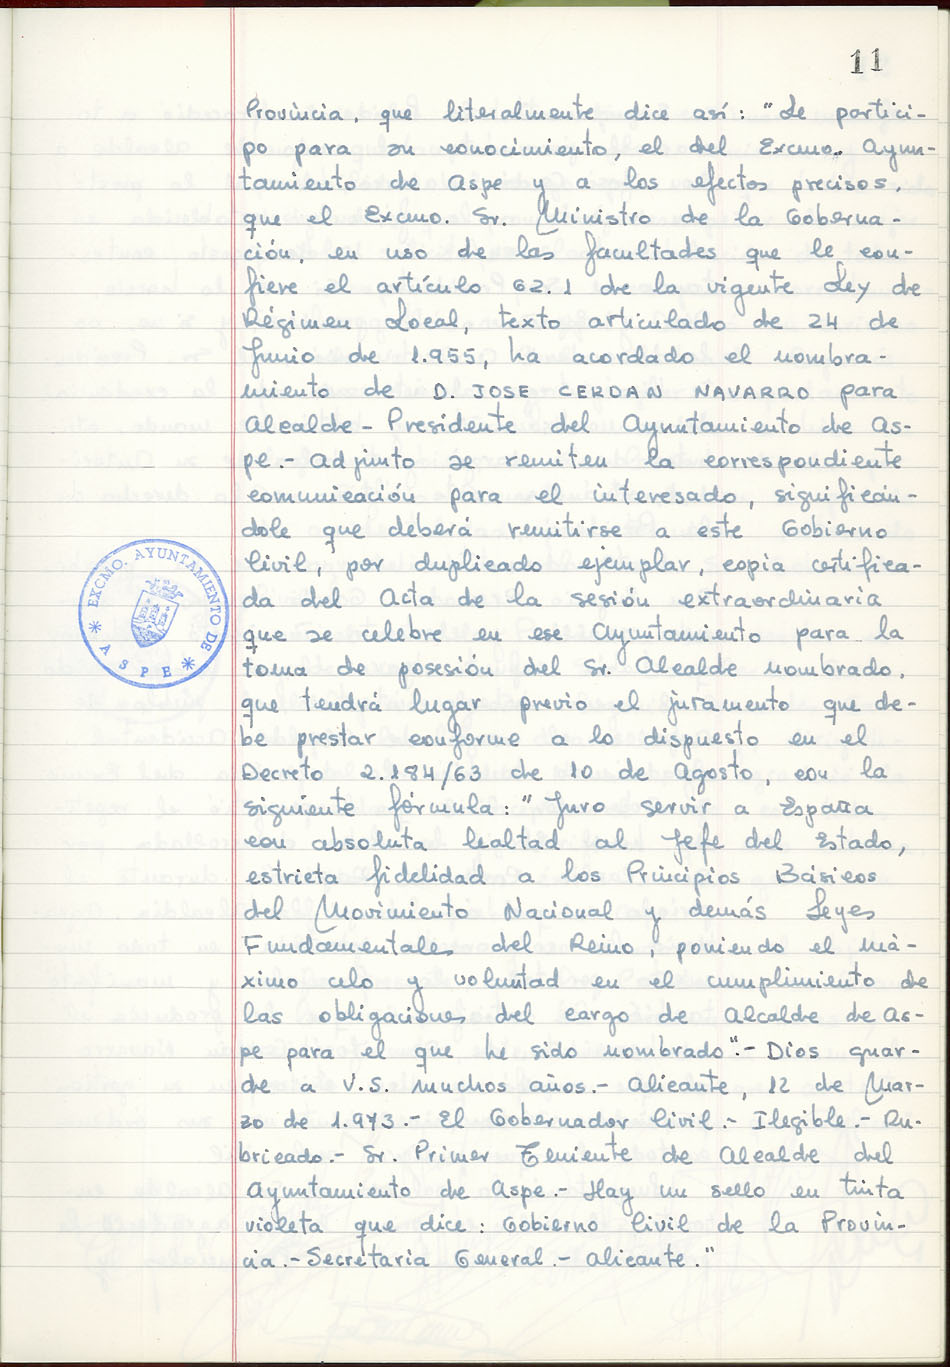 11
Provincia, que literalmente dice así: "Le partici-
po para su conocimiento, el del Excmo. Ayun-
tamiento de Aspe y a los efectos precisos,
que el Excmo. Sr. Ministro de la Goberna-
ción, en uso de las facultades que le con-
fiere el artículo 62.1 de la vigente Ley de
Régimen Local, texto articulado de 24 de
Junio de 1.955, ha acordado el nombra-
miento de D. JOSE CERDAN NAVARRO para
Alcalde-Presidente del Ayuntamiento de As-
pe.- Adjunto se remiten la correspondiente
comunicación para el interesado, significán-
dole que deberá remitirse a este Gobierno
Civil, por duplicado ejemplar, copia certifica-
da del Acta de la sesión extraordinaria
que se celebre en ese Ayuntamiento para la
toma de posesión del Sr. Alcalde nombrado,
que tendrá lugar previo el juramento que de-
be prestar conforme a lo dispuesto en el
Decreto 2.184/63 de 10 de Agosto, con la
siguiente fórmula: "Juro servir a España
con absoluta lealtad al Jefe del Estado,
estricta fidelidad a los Principios Básicos
del Movimiento Nacional y demás Leyes
Fundamentales del Reino, poniendo el má-
ximo celo y voluntad en el cumplimiento de
las obligaciones del cargo de Alcalde de As-
pe para el que he sido nombrado".- Dios guar-
de a V.S. muchos años.- Alicante, 12 de Mar-
zo de 1.973.- El Gobernador Civil.- Ilegible.- Ru-
bricado.- Sr. Primer Teniente de Alcalde del
Ayuntamiento de Aspe.- Hay un sello en tinta
violeta que dice: Gobierno Civil de la Provin-
cia.- Secretaría General.- Alicante."
EXCMO. AYUNTAMIENTO DE
* ASPE *